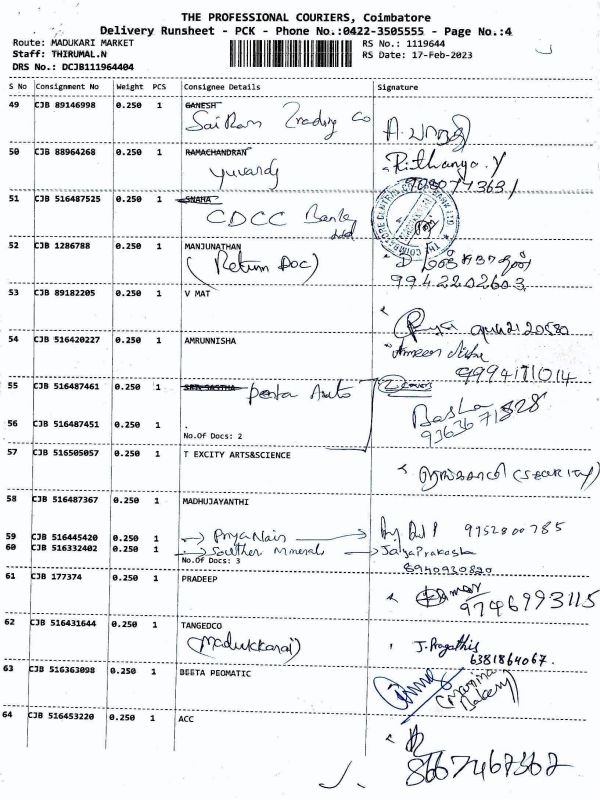 THE PROFESSIONAL COURIERS, Coimbatore
Delivery Runsheet - PCK - Phone No.:0422-3505555 - Page No.:4
Route: MADUKARI MARKET RS No.: 1119644
Staff: THIRUMAL.N RS Date: 17-Feb-2023
DRS No.: DCJB111964404
S No Consignment No Weight PCS Consignee Details Signature
49 CJB 89146998 0.250 1 GANESH
Sai Ram Trading Co
50 CJB 88964268 0.250 1 RAMACHANDRAN
Yuvaraj Rithanya.Y
51 CJB 516487525 0.250 1 SNAHA
CDCC Bank
Ltd
52 CJB 1286788 0.250 1 MANJUNATHAN
(Return Doc)
9942202603
53 CJB 89182205 0.250 1 V MAT
54 CJB 516420227 0.250 1 AMRUNNISHA
Ameer Nisha
9994171014
55 CJB 516487461 0.250 1 SRI SASTHA Penta Auto 2 Covers
Basha
56 CJB 516487451 0.250 1 . 9363671828
No.Of Docs: 2
57 CJB 516505057 0.250 1 T EXCITY ARTS&SCIENCE
(SECURITY)
58 CJB 516487367 0.250 1 MADHUJAYANTHI
59 CJB 516445420 0.250 1 Priya Nair 9952800785
60 CJB 516332402 0.250 1 Southern Minerals JayaPrakash
No.Of Docs: 3 8940930820
61 CJB 177374 0.250 1 PRADEEP
9746993115
62 CJB 516431644 0.250 1 TANGEDCO
(Madukkarai) J.Pragathis
6381864067.
63 CJB 516363098 0.250 1 BEETA PEOMATIC
Bakery)
64 CJB 516453220 0.250 1 ACC
8667467362